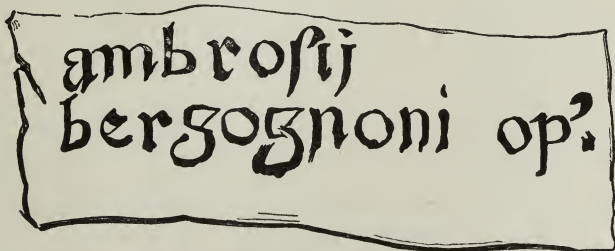 ambroſij
bergognoni op’.